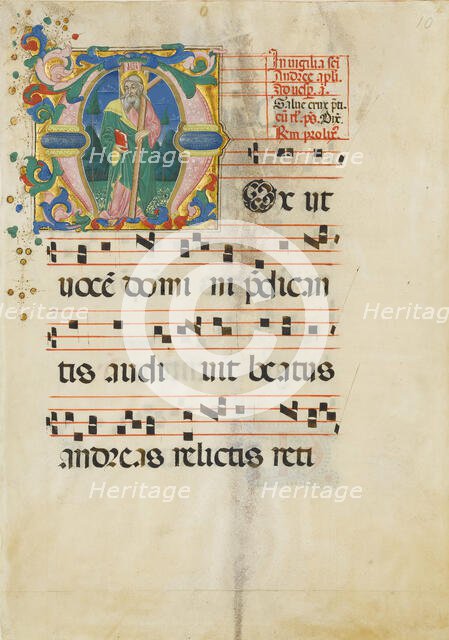 10
In vigilia sc̃i
Andree apl̃i
Ad vesp̃. a.
Salue crux p̃ti
Rm̃ prolix̃
Ox ut
uocẽ domi ni p̃dican
tis audi uit beatus
andreas relictis reti
Heritage Heritage
Heritage Heritage
Heritage Heritage